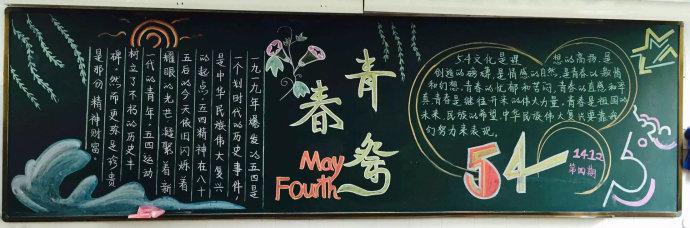 一九一九年爆发的五四是
一个划时代的历史事件,
是中华民族伟大复兴
的起点。五四精神在八十
五后的今天依旧闪烁着
耀眼的光芒,凝聚着新
一代的青年。五四运动
树立了不朽的历史丰
碑,然而更弥足珍贵
是那份精神财富。
青春祭
May
Fourth
54文化是理想的高扬,是
创造的磅礴,是情感的自然,是青春的激情
和幻想,青春的忧郁和苦闷,青春的自恋和率
真。青春是继往开来的伟大力量,青春是祖国的
未来,民族的希望,中华民族伟大复兴要靠我
们努力来表现。
54
1412
第四期